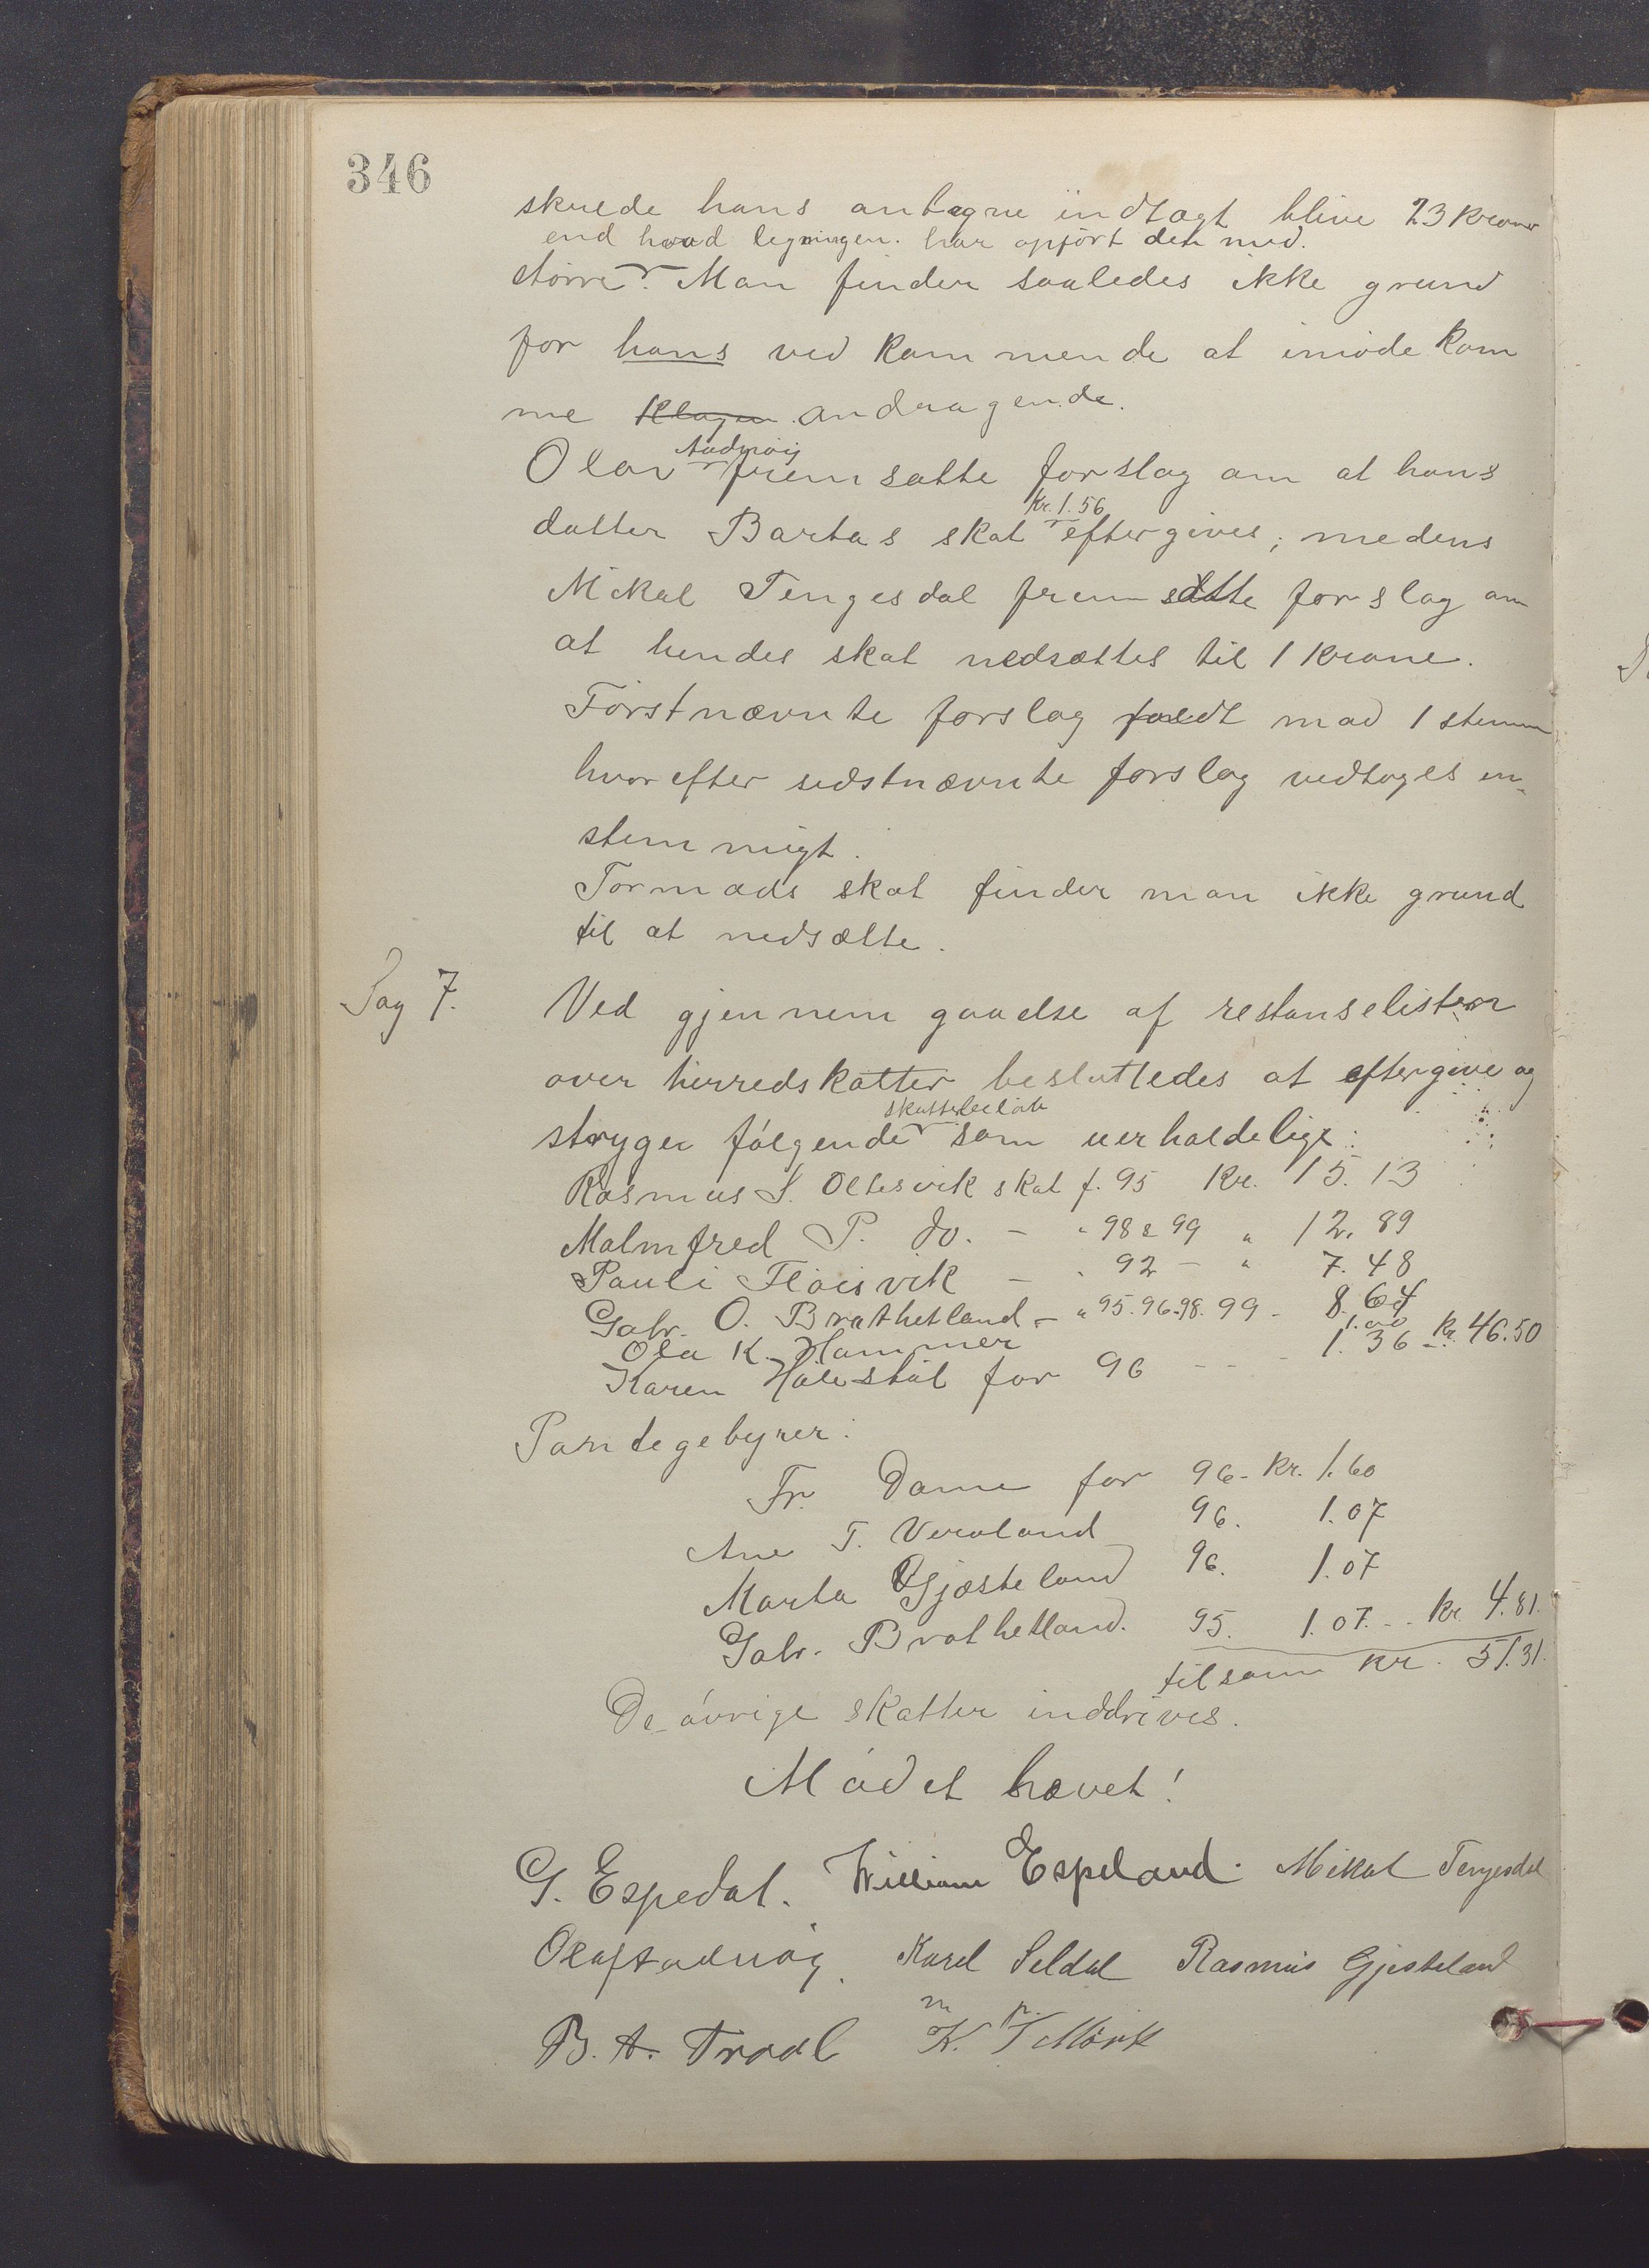 346
skulde hans antagne indtægt blive 23 kroner
end hvad ligningen har opført den med.
større. Man finder saaledes ikke grund
for hans ved kommende at imøde kom
me Klagen andragende.
Aadnøig
Olav fremsatte forslag om at hans
kr. 1.56
datter Bartas skat eftergives; medens
Mikal Tengesdal fremsatte forslag om
at hendes skat nedsættes til 1 krone.
Førstnævnte forslag faldt mod 1 stemme
hvorefter sidstnævnte forslag vedtoges en-
stemmigt.
Tormods skat finder man ikke grund
til at nedsætte.
Sag 7. Ved gjennemgaaelse af restanselisten
over herredskatter besluttedes at eftergive og
skattebeløb
stryge følgende som uerholdelige:
Rasmus S. Oltesvik skat f. 95 Kr. 15.13
Malmfred P. do. - " 98 & 99 " 12.89
Pauli Fløisvik - " 92 - " 7.48
Gabr. O. Brathetland - " 95.96.98.99 - 8.64
Ola K. Hammer 1.00
Karen Hølestøl for 96 - - - 1.36 kr. 46.50
Pantegebyrer:
Fr. Dame for 96 - Kr. 1.60
Ane T. Veraland 96. 1.07
Marta Gjæsteland 96. 1.07
Gabr. Brathetland. 95. 1.07. - - kr. 4.81.
tilsam kr. 51.31.
De øvrige skatter inddrives.
Mødet hævet!
G. Espedal. William Espeland. Mikal Tengesdal
Olaf Aadnøig. Karel Seldal Rasmus Gjesteland
B. A. Traal K. T Mørk